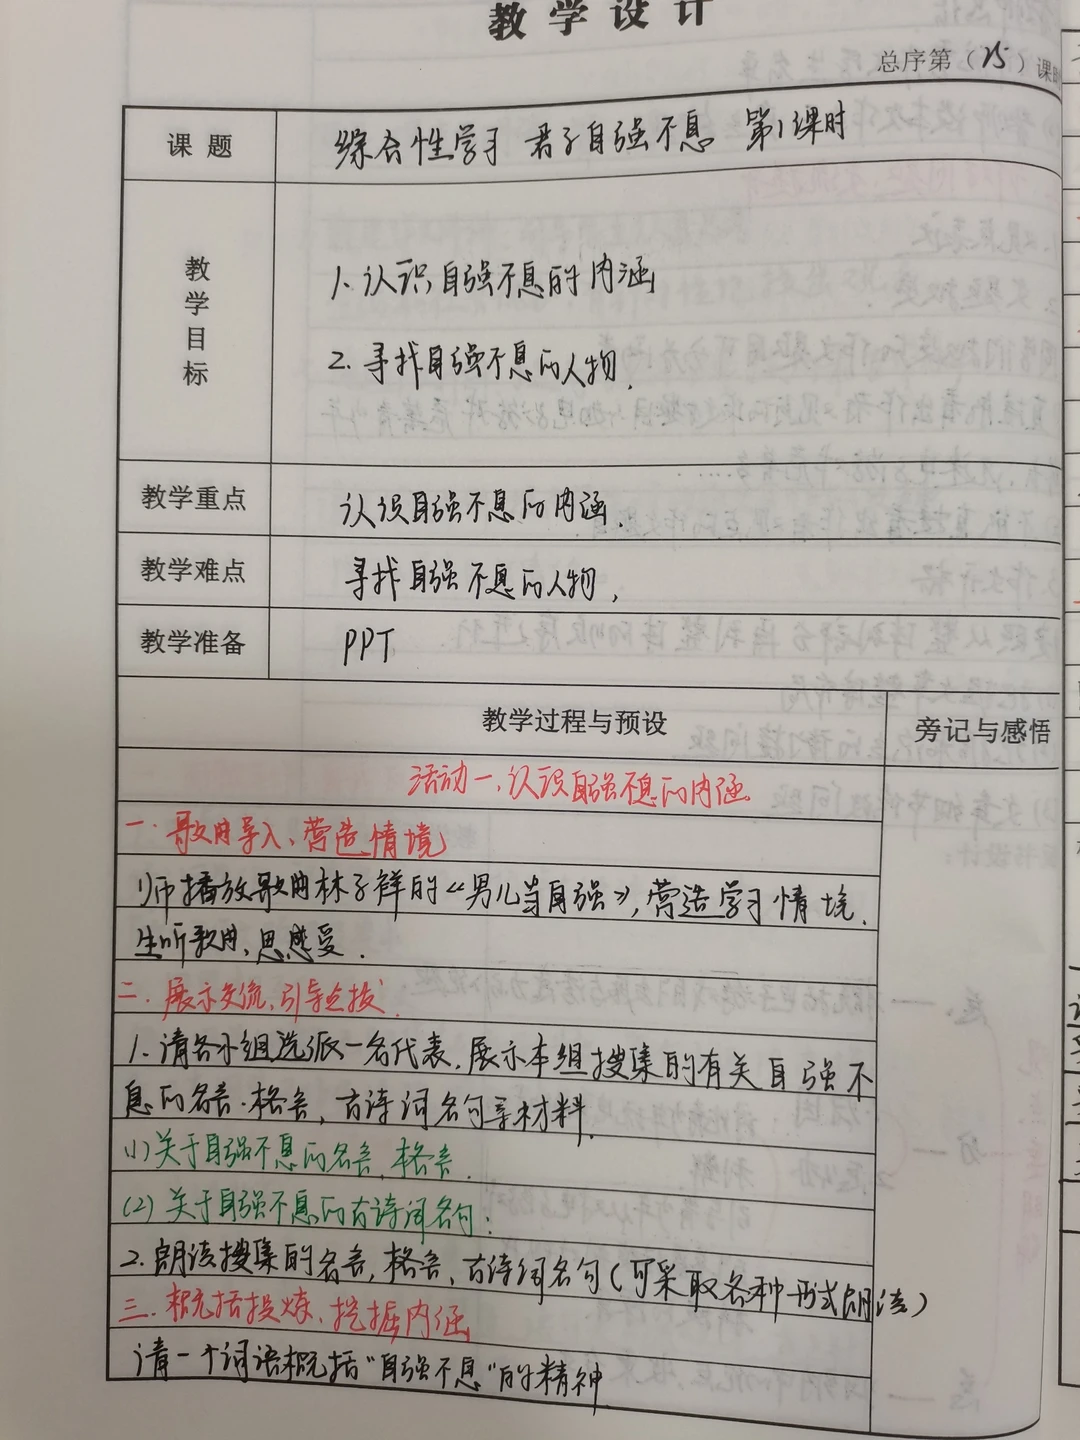 教学设计
总序第（25）课时
课题
综合性学习 君子自强不息 第1课时
教学目标
1.认识自强不息的内涵
2.寻找自强不息的人物.
教学重点
认识自强不息的内涵.
教学难点
寻找自强不息的人物,
教学准备
PPT
教学过程与预设
旁记与感悟
活动一,认识自强不息的内涵
一.歌曲导入、营造情境
1)师播放歌曲林子祥的《男儿当自强》,营造学习情境.
生听歌曲,思感受.
二.展示交流,引导点拨.
1.请各小组选派一名代表,展示本组搜集的有关自强不
息的名言.格言,古诗词名句等材料.
(1)关于自强不息的名言,格言.
(2)关于自强不息的古诗词名句:
2.朗读搜集的名言,格言、古诗词名句(可采取各种形式朗读)
三.概括提炼、挖掘内涵
请一个词语概括"自强不息"的精神.